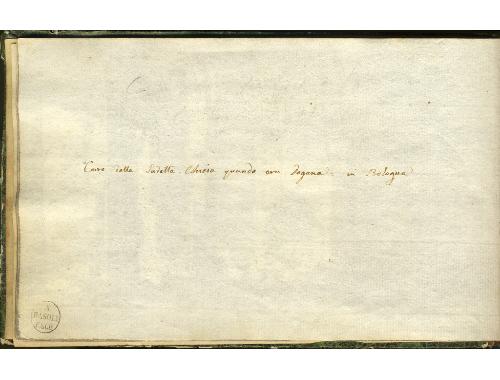 della Sudetta Chiesa quando era Dogana in Bologna
BASOLI